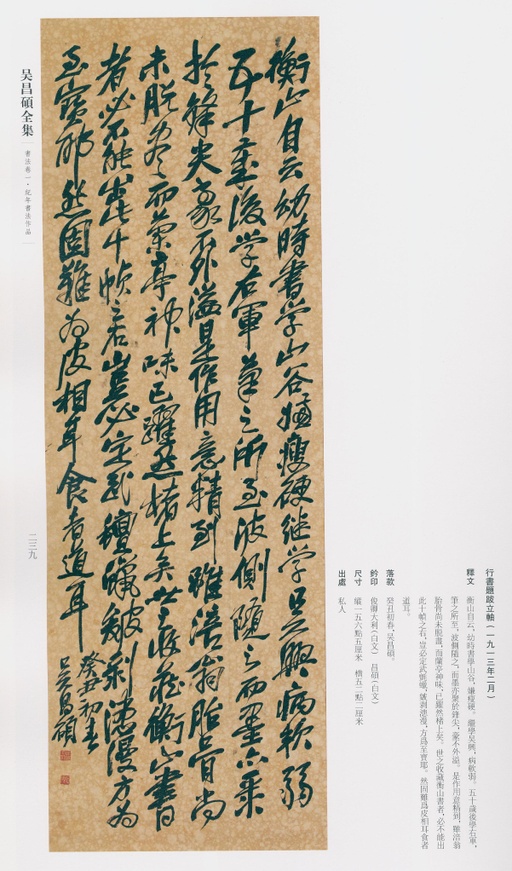 行書題跋立軸(一九一三年二月)
釋文 衡山自云,幼時書學山谷,嫌瘦硬。繼學吳興,病軟弱。五十歲後學右軍,
筆之所至,波側隨之,而墨亦聚於鋒尖,豪不外溢。是作用意精到,雖涪翁
胎骨尚未脫盡,而蘭亭神味,已躍然楮上矣。世之收藏衡山書者,必不能出
此十幀之右,豈必定武氈蠟,皴剥漶漫,方為至寶耶。然固難為皮相耳食者
道耳。
落款 癸丑初春,吴昌碩。
鈐印 俊卿大利(白文) 昌碩(白文)
尺寸 縱一五六點五厘米 橫五二點二厘米
出處 私人
衡山自云幼時書学山谷嫌瘦硬继学吳興病軟弱
五十歲後学右軍筆之所至波側隨之而墨亦聚
於鋒尖豪不外溢是作用意精到雖涪翁胎骨尚
未脫盡而蘭亭神味已躍然楮上矣世之收藏衡山書
者必不能出此十幀之右豈必定武氈蠟皴剥漶漫方為
至寶耶然固難為皮相耳食者道耳
癸丑初春
吳昌碩
吴昌碩全集
書法卷一·紀年書法作品
二三九